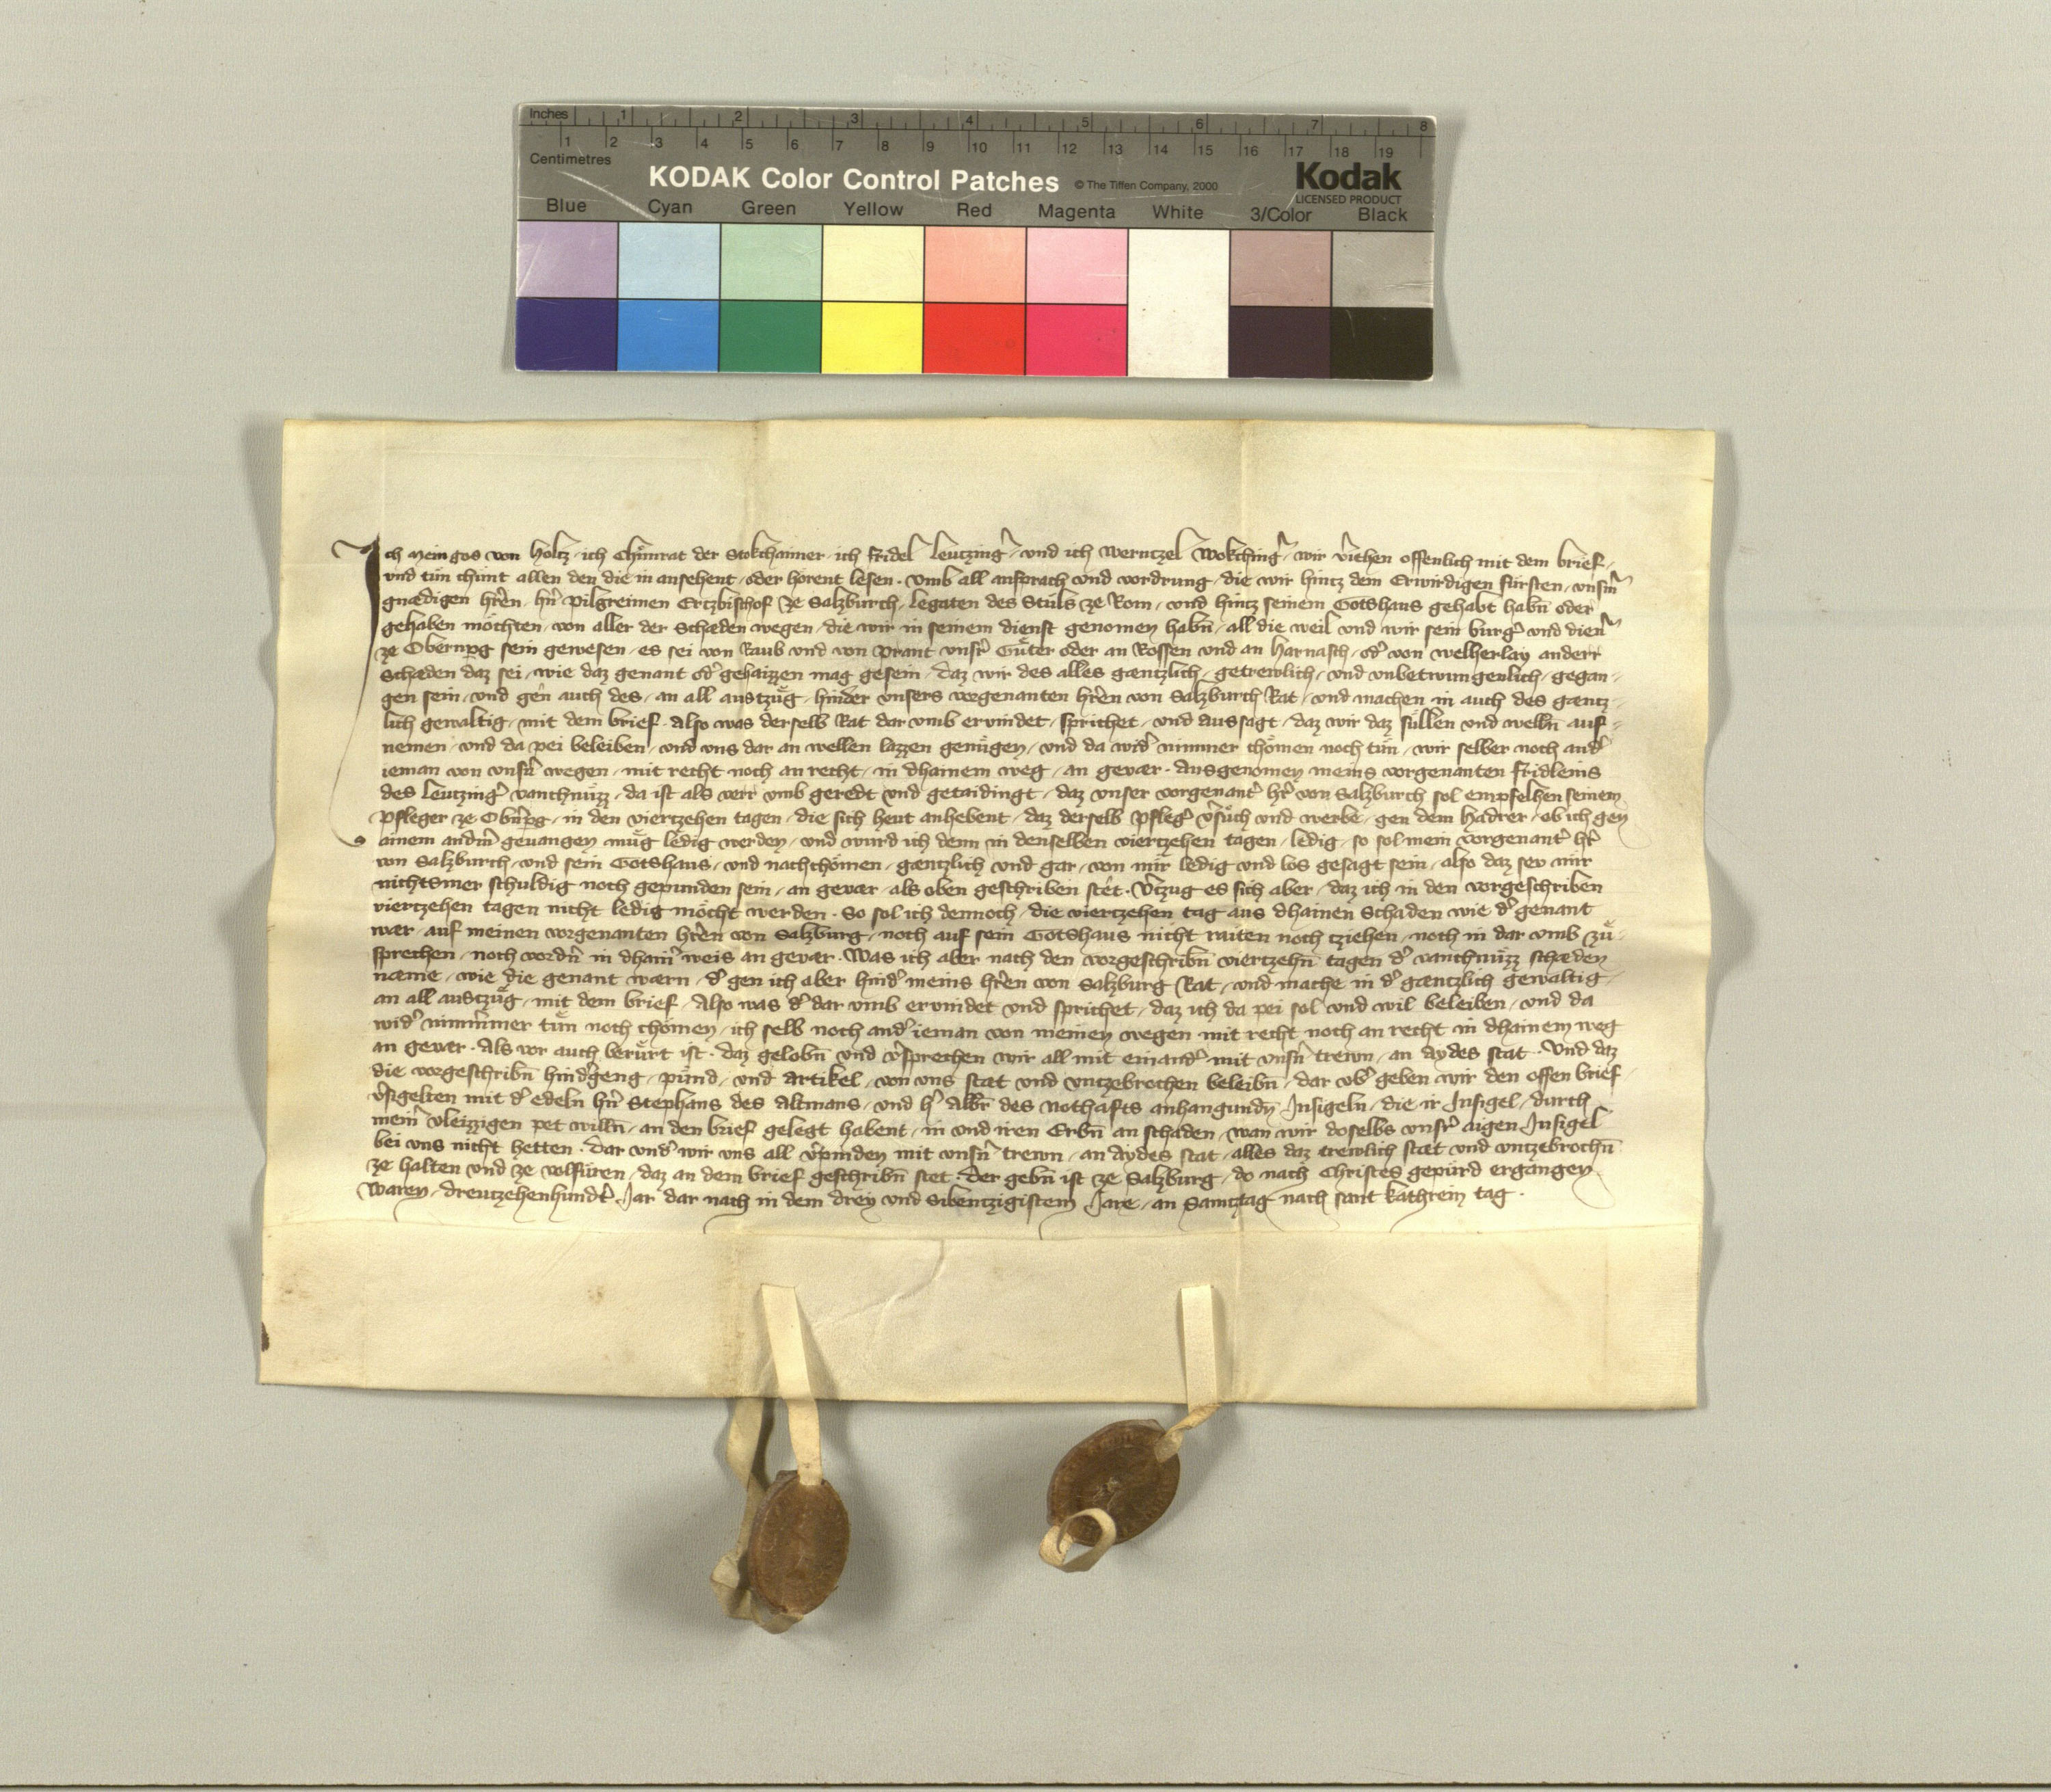 Inches 1 2 3 4 5 6 7 8
Centimetres 1 2 3 4 5 6 7 8 9 10 11 12 13 14 15 16 17 18 19
KODAK Color Control Patches © The Tiffen Company, 2000 Kodak
LICENSED PRODUCT
Blue Cyan Green Yellow Red Magenta White 3/Color Black
Ich Meingos von Holtz, ich Chunrat der Stokchaimer, ich Fridel Leutzing, und ich Werntzel Wokching, wir v̂iehen offenlich mit dem brief,
und tůn chunt allen den die in ansehent, oder hörent lesen. Vmb all ansprach und vordrung, die wir hintz dem Erwirdigen fürsten, unsm̂
gnædigen hr̂en, hn̂ Pilgreimen Ertzbischof ze Salzburch, legaten des Stůls ze Rom, und hintz seinem Gotshaus gehabt habn̄ oder
gehaben möchten, von aller der Schæden wegen, die wir in seinem dienst genomen habn̄, all die weil und wir sein burg̓ und dien̓
ze Obernpg sein gewesen, es sei von Raub und von prant unsr̂ Gůter oder an Rossen und an Harnasch, od̓ von welherlay anderr
Schæden daz sei, wie daz genant od̓ gehaizzen mag gesein, daz wir des alles gæntzlich, getrewlich, und unbetwungenlich, gegan-
gen sein, und gen auch des, an all austzůg, hinder unsers vorgenanten hr̂en von Salzburch Rat, und machen in auch des gæntz-
lich gewaltig, mit dem brief. Also was derselb Rat dar umb ervindet, sprichet, und aussagt, daz wir daz süllen und welln̄ auf-
nemen, und da pei beleiben, und uns dar an wellen lazzen genůgen, und da wid̓ nimmer chömen noch tůn, wir selber noch and̓
ieman von unsn̂ wegen, mit recht noch an recht, in dhainem weg, an gevær. Ausgenomen meins vorgenanten Fridleins
des Leutzing̓ vanchnüzz, da ist als verr umb geredt und getaidingt, daz unser vorgenant̓ hr̂ von Salzburch sol empfelhen seinem
Pfleger ze Obn̂pg, in den viertzehen tagen, die sich heut anhebent, daz derselb Pfleg̓ v̂sůch und werbe, gen dem Hadrer, ob ich gen
ainem andm̂ gevangen müg ledig werden, und wurd ich denn in denselben viertzehen tagen, ledig, so sol mein vorgenant̓ hr̂
von Salzburch, und sein Gotshaus, und nachchömen, gæntzlich und gar, von mir ledig und los gesagt sein, also daz sev mir
nichtsmer schuldig noch gepunden sein, an gevær, als oben geschriben stet. V̂tzug es sich aber, daz ich in den vorgeschriben
viertzehen tagen nicht ledig möcht werden. So sol ich dennoch, die viertzehen tag aus dhainen Schaden wie d̓ genant
wær, auf meinen vorgenanten hr̂en von Salzburg, noch auf sein Gotshaus nicht raiten noch tziehen, noch in dar umb zů-
sprechen, noch vordn̂ in dhain̂ weis an gevær. Was ich aber nach den vorgeschribn̄ viertzehn̄ tagen d̓ vanchnüzz schæden
næme, wie die genant wærn, d̓ gen ich aber hind̓ meins hr̂en von Salzburg Rat, und mache in d̓ gæntzlich gewaltig,
an all austzůg, mit dem brief. Also was d̓ dar umb ervindet und sprichet, daz ich da pei sol und wil beleiben, und da
wid̓ nimmer tůn noch chömen, ich selb noch and̓ ieman von meinen wegen mit recht noch an recht in dhainem weg
an gevær. Als vor auch berürt ist. Daz gelobn̄ und v̂sprechen wir all mit einand̓ mit unsn̂ trewn, an aydes stat. Und daz
die vorgeschribn̄ hind̓geng, pünd, und artikel, von uns stæt und untzebrochen beleibn̄, dar vb̓ geben wir den offen brief,
v̂sigelten mit d̓ edeln hn̂ Stephans des Altmans, und h̓ Albr̄ des Nothafts anhangundn̄ Insigeln, die ir Insigel, durch
mein̂ vleizzigen pet willn̄, an den brief gelegt habent, in und iren Erbn̄ an schaden, wan wir doselbs unsr̂ aigen Insigel
bei uns nicht hetten. Dar und̓ wir uns all v̂pinden mit unsn̂ trewn, an aydes stat, alles daz trewlich stæt und untzebrochn̄
ze halten und ze volfüren, daz an dem brief geschribn̄ stet. Der gebn̄ ist ze Salzburg, do nach Christes gepürd ergangen
waren, dreutzehenhundt̓ Jar dar nach in dem drey und Sibentzigistem Jare, an Samtztag nach sant Kathrein tag.